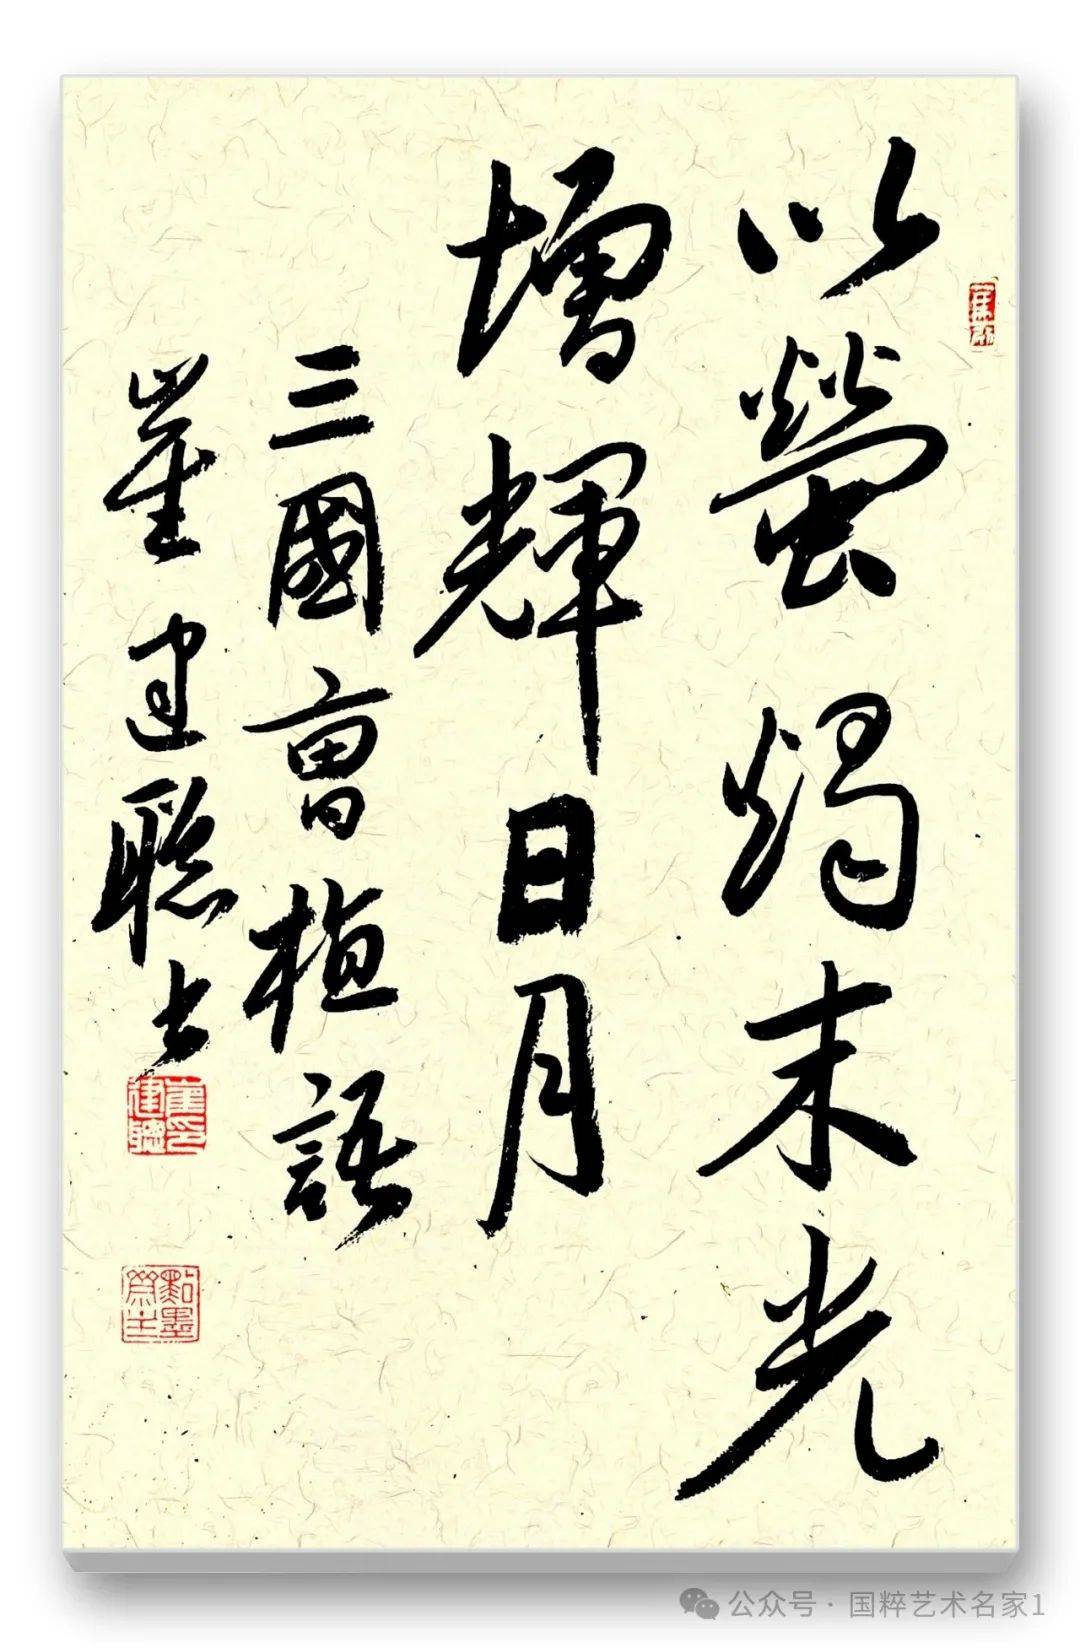 以螢燭末光
增輝日月
三國曹植語
崔建聰书
崔印建聰
公众号 · 国粹艺术名家1